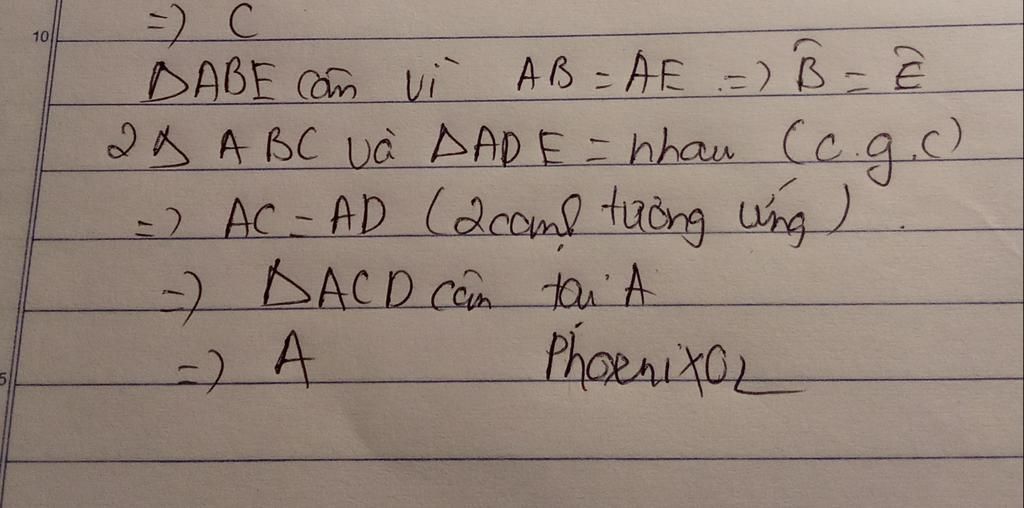 10
=) C
ΔABE cân vì AB = AE =) B̂ = Ê
2Δ ABC và ΔADE = nhau (c.g.c)
=) AC = AD (2 cạnh tương ứng)
=) ΔACD cân tại A
=) A Phoenix02
5